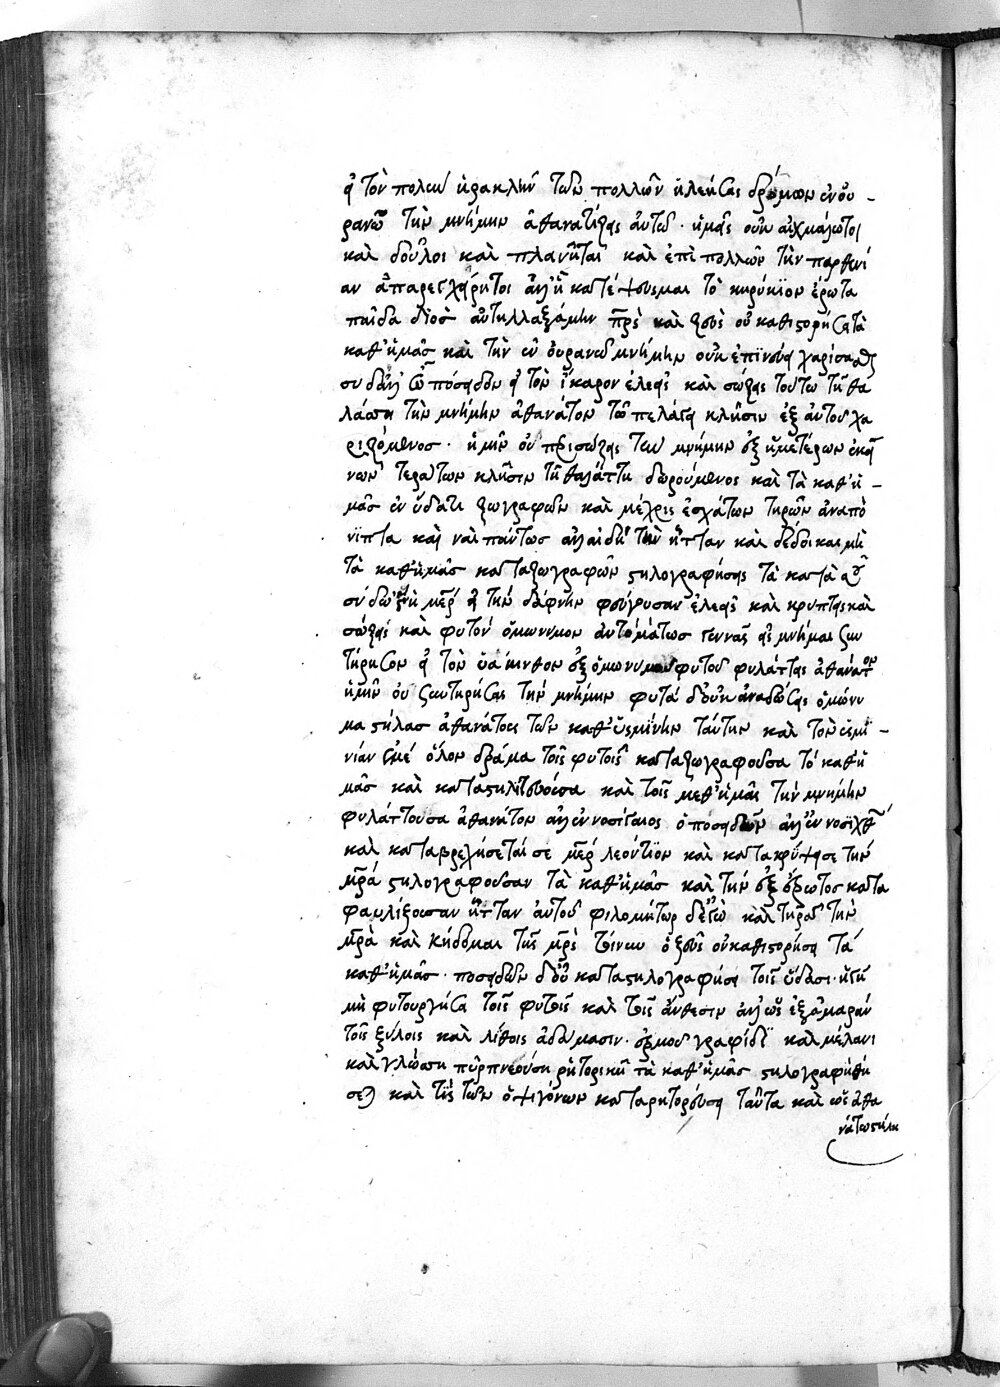 εἰ τὸν πολὺν ἡρακλῆν τῶν πολλῶν ἠλέησας δρόμων ἐν οὐ-
ρανῶ τὴν μνήμην ἀθανατίσας αὐτοῦ· ἡμεῖς οὐκ αἰχμάλωτοι
καὶ δοῦλοι καὶ πλανῆται καὶ ἐπὶ πολλῶν τὴν παρθενί
αν ἀπαρεγχείρητοι ἀλλ' εἰ κατέψευσμαι τὸ κηρύκιον ἔρωτα
παῖδα διὸς ἀνταλλαξάμην πρς καὶ ζεὺς οὐ καθιστορήσει τὰ
καθ' ἡμᾶς καὶ τὴν ἐν οὐρανῶ μνήμην οὐκ ἐπινεύσει χαρίσασθαι
σὺ δ' ἀλλ' ὦ πόσειδον εἰ τὸν ἴκαρον ἐλεεῖς καὶ σώζεις τούτω τῇ θα
λάσση τὴν μνήμην ἀθάνατον τῶ πελάγει κλῆσιν ἐξ αὐτοῦ χα
ριζόμενος· ἡμῖν οὐ περισώζεις τὴν μνήμην ἐξ ἡμετέρων ἐκεί
νων τεράτων κλῆσιν τῇ θαλάττῃ δωρούμενος καὶ τὰ καθ' ἡ-
μᾶς ἐν ὕδατι ζωγραφῶν καὶ μέχρις ἐσχάτων τηρῶν ἀναπό
νιπτα καὶ ναὶ πάντως ἀλλ' αἰδῇ τὴν ἧτταν καὶ δέδοικα μὴ
τὰ καθ' ἡμᾶς καταζωγραφῶν στηλογραφήσῃς τὰ κατὰ σοῦ
σὺ δ' ὦ γῆ μερ εἰ τὴν δάφνην φεύγουσαν ἐλεεῖς καὶ κρύπτεις καὶ
σώζεις καὶ φυτὸν ὁμώνυμον αὐτομάτως γεννᾷς εἰς μνήμης συν
τήρησιν εἰ τὸν ὑάκινθον ἐξ ὁμωνύμου φυτοῦ φυλάττεις ἀθάνατον
ἡμῖν οὐ συντηρήσεις τὴν μνήμην φυτὰ δ' οὐκ ἀναδώσεις ὁμώνυ
μα στήλας ἀθανάτους τῶν καθ' ὑσμίνην ταύτην καὶ τὸν ὑσμι-
νίαν ἐμέ ὅλον δρᾶμα τοῖς φυτοῖς καταζωγραφοῦσα τὸ καθ' ἡ
μᾶς καὶ καταστηλιτεύουσα καὶ τοῖς μεθ' ἡμᾶς τὴν μνήμην
φυλάττουσα ἀθάνατον ἀλλ' ἐννοσίγαιος ὁ ποσειδῶν ἀλλ' ἐννοσίχθων
καὶ καταβρεχήσεταί σε μερ λεόντιον καὶ κατακρύψει τὴν
μρα στηλογραφοῦσαν τὰ καθ' ἡμᾶς καὶ τὴν ἐξ ἔρωτος κατα
φαυλίζουσαν ἧτταν αὐτοῦ φιλομήτωρ δ' ἐγὼ καὶ τηρῶ τὴν
μρα καὶ κήδομαι τῆς μρς τοίνυν ὁ ζεὺς οὐ καθιστορήσει τὰ
καθ' ἡμᾶς· ποσειδῶν δ' οὐ καταστηλογραφήσει τοῖς ὕδασι· ἡ γῆ
μὴ φυτουργήσει τοῖς φυτοῖς καὶ τοῖς ἄνθεσιν ἀλλ' ὡς ἐξ ἀμαράν
τοις ξύλοις καὶ λίθοις ἀδάμασιν· ἑρμοῦ γραφίδι καὶ μέλανι
καὶ γλώσση πῦρ πνεούση ῥητορικῇ τὰ καθ' ἡμᾶς στηλογραφηθή
σεται καὶ τις τῶν ὀψιγόνων καταρητορεύσει ταῦτα καὶ ὡς ἀθα
νάτω στήλη